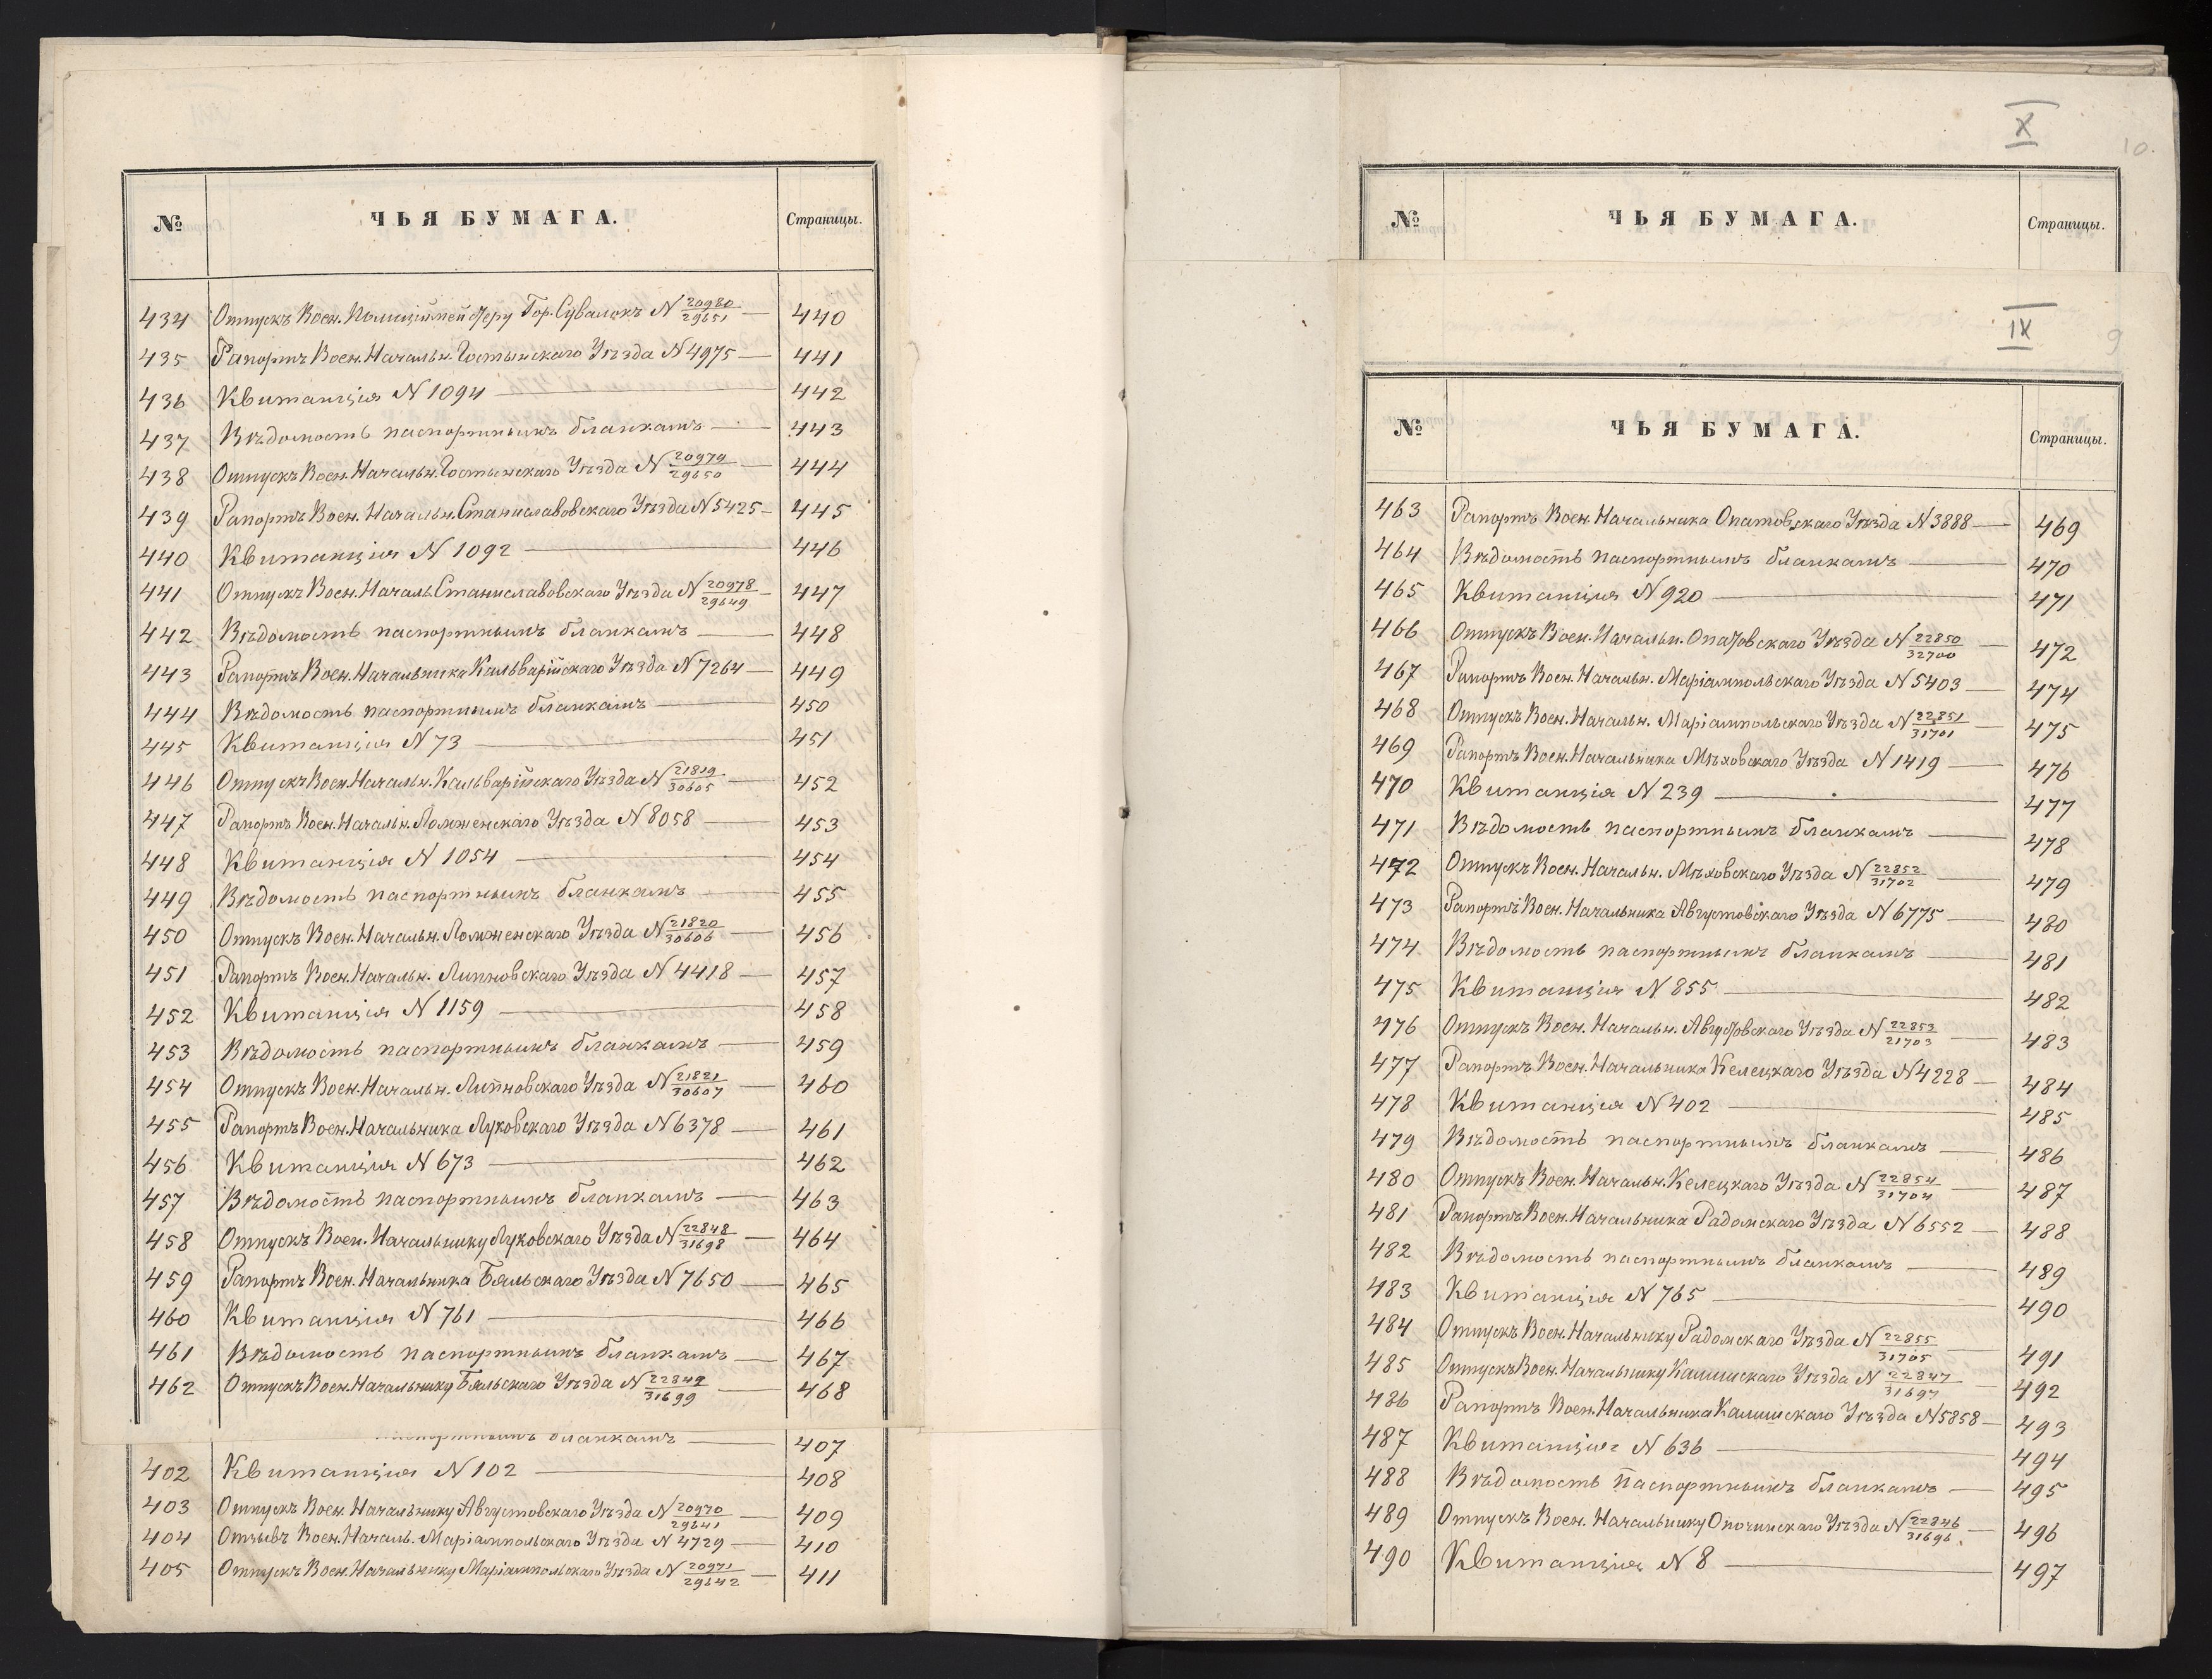 № ЧЬЯ БУМАГА. Страницы.
434 Отпускъ Воен. Полиціймейстеру Гор. Сувалокъ N 20980/29651 — 440
435 Рапортъ Воен. Начальн. Гостынскаго Уѣзда N 4975 — 441
436 Квитанція N 1094 — 442
437 Вѣдомость паспортнымъ бланкамъ — 443
438 Отпускъ Воен. Начальн. Гостынскаго Уѣзда N 20979/29650 — 444
439 Рапортъ Воен. Начальн. Станиславовскаго Уѣзда N 5425 — 445
440 Квитанція N 1092 — 446
441 Отпускъ Воен. Началь Станиславовскаго Уѣзда N 20978/29649 — 447
442 Вѣдомость паспортнымъ бланкамъ — 448
443 Рапортъ Воен. Начальника Кальварійскаго Уѣзда N 7264 — 449
444 Вѣдомость паспортнымъ бланкамъ — 450
445 Квитанція N 73 — 451
446 Отпускъ Воен. Начальн. Кальварійскаго Уѣзда N 21819/30605 — 452
447 Рапортъ Воен. Начальн. Ломженскаго Уѣзда N 8058 — 453
448 Квитанція N 1054 — 454
449 Вѣдомость паспортнымъ бланкамъ — 455
450 Отпускъ Воен. Начальн. Ломженскаго Уѣзда N 21820/30606 — 456
451 Рапортъ Воен. Начальн. Липновскаго Уѣзда N 4418 — 457
452 Квитанція N 1159 — 458
453 Вѣдомость паспортнымъ бланкамъ — 459
454 Отпускъ Воен. Начальн. Липновскаго Уѣзда N 21821/30607 — 460
455 Рапортъ Воен. Начальника Луковскаго Уѣзда N 6378 — 461
456 Квитанція N 673 — 462
457 Вѣдомость паспортнымъ бланкамъ — 463
458 Отпускъ Воен. Начальнику Луковскаго Уѣзда N 22848/31698 — 464
459 Рапортъ Воен. Начальника Бяльскаго Уѣзда N 7650 — 465
460 Квитанція N 761 — 466
461 Вѣдомость паспортнымъ бланкамъ — 467
462 Отпускъ Воен. Начальнику Бяльскаго Уѣзда N 22849/31699 — 468
паспортнымъ бланкамъ — 407
402 Квитанція N 102 — 408
403 Отпускъ Воен. Начальнику Августовскаго Уѣзда N 20970/29641 — 409
404 Отзывъ Воен. Началь. Маріампольскаго Уѣзда N 4729 — 410
405 Отпускъ Воен. Начальнику Маріампольскаго Уѣзда N 20971/29642 — 411
X 10.
№ ЧЬЯ БУМАГА. Страницы.
IX 9
№ ЧЬЯ БУМАГА. Страницы.
463 Рапортъ Воен. Начальника Опатовскаго Уѣзда N 3888 — 469
464 Вѣдомость паспортнымъ бланкамъ — 470
465 Квитанція N 920 — 471
466 Отпускъ Воен. Начальн. Опатовскаго Уѣзда N 22850/32700 — 472
467 Рапортъ Воен. Начальн. Маріампольскаго Уѣзда N 5403 — 474
468 Отпускъ Воен. Начальн. Маріампольскаго Уѣзда N 22851/31701 — 475
469 Рапортъ Воен. Начальника Мѣховскаго Уѣзда N 1419 — 476
470 Квитанція N 239 — 477
471 Вѣдомость паспортнымъ бланкамъ — 478
472 Отпускъ Воен. Начальн. Мѣховскаго Уѣзда N 22852/31702 — 479
473 Рапортъ Воен. Начальника Августовскаго Уѣзда N 6775 — 480
474 Вѣдомость паспортнымъ бланкамъ — 481
475 Квитанція N 855 — 482
476 Отпускъ Воен. Начальн. Августовскаго Уѣзда N 22853/21703 — 483
477 Рапортъ Воен. Начальника Келецкаго Уѣзда N 4228 — 484
478 Квитанція N 402 — 485
479 Вѣдомость паспортнымъ бланкамъ — 486
480 Отпускъ Воен. Начальн. Келецкаго Уѣзда N 22854/31704 — 487
481 Рапортъ Воен. Начальника Радомскаго Уѣзда N 6552 — 488
482 Вѣдомость паспортнымъ бланкамъ — 489
483 Квитанція N 765 — 490
484 Отпускъ Воен. Начальнику Радомскаго Уѣзда N 22855/31705 — 491
485 Отпускъ Воен. Начальнику Калишскаго Уѣзда N 22847/31697 — 492
486 Рапортъ Воен. Начальника Калишскаго Уѣзда N 5858 — 493
487 Квитанція N 636 — 494
488 Вѣдомость паспортнымъ бланкамъ — 495
489 Отпускъ Воен. Начальнику Опочинскаго Уѣзда N 22846/31696. — 496
490 Квитанція N 8 — 497